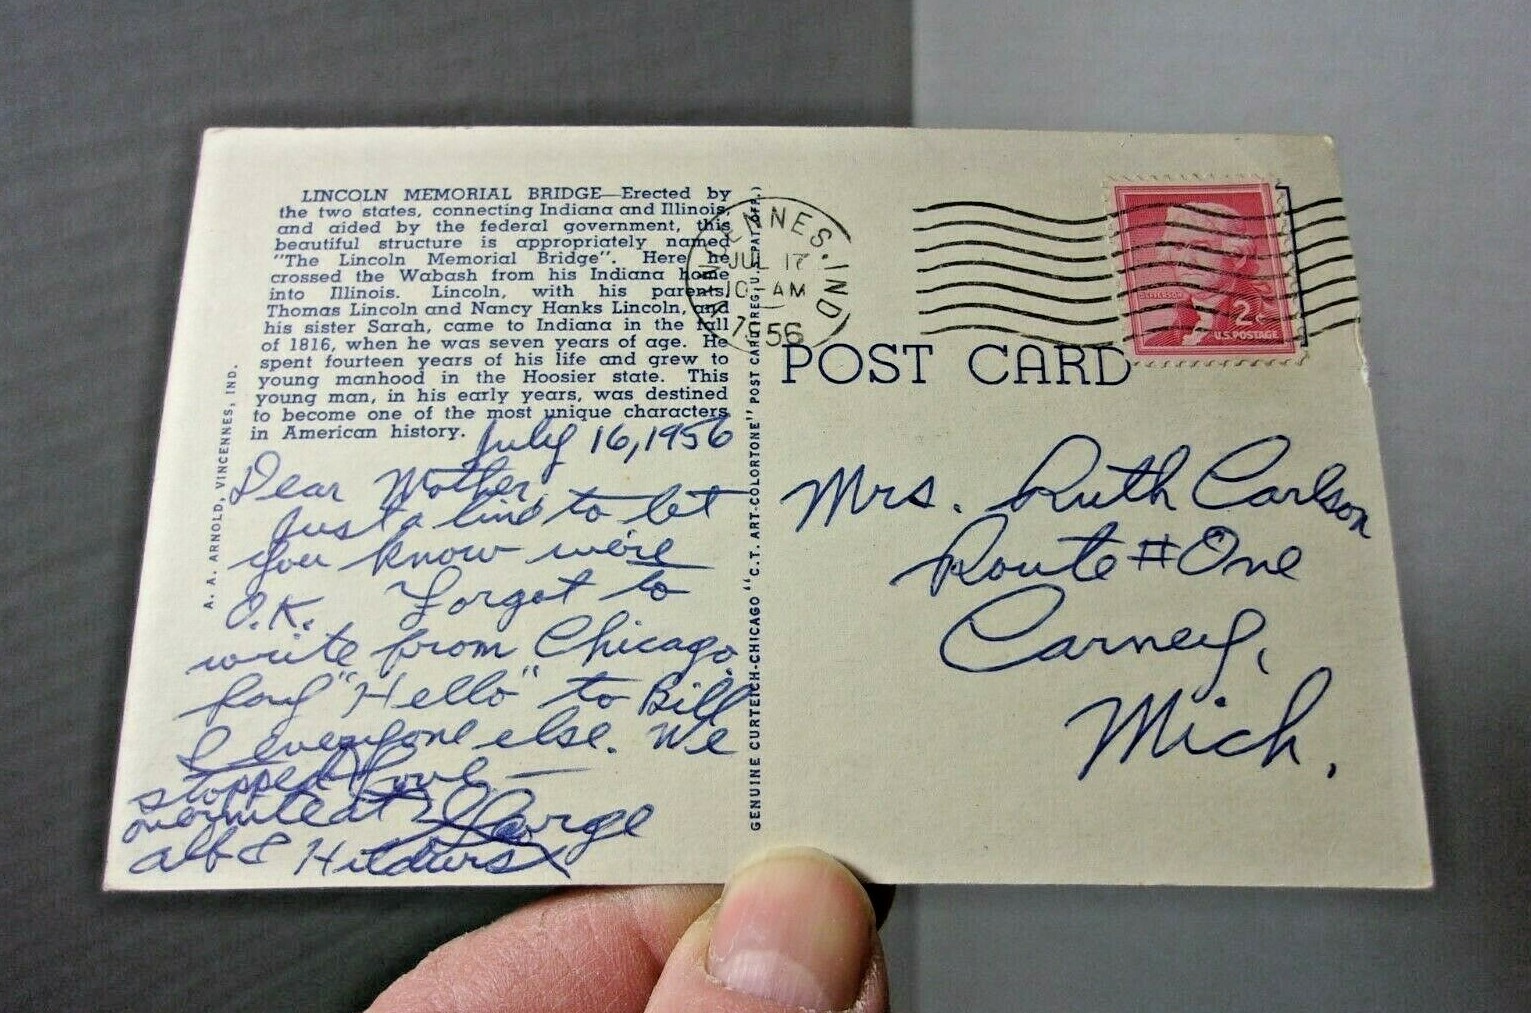 LINCOLN MEMORIAL BRIDGE—Erected by
the two states, connecting Indiana and Illinois,
and aided by the federal government, this
beautiful structure is appropriately named
"The Lincoln Memorial Bridge". Here he
crossed the Wabash from his Indiana home
into Illinois. Lincoln, with his parents,
Thomas Lincoln and Nancy Hanks Lincoln, and
his sister Sarah, came to Indiana in the fall
of 1816, when he was seven years of age. He
spent fourteen years of his life and grew to
young manhood in the Hoosier state. This
young man, in his early years, was destined
to become one of the most unique characters
in American history.
A. A. ARNOLD, VINCENNES, IND.
July 16, 1956
Dear Mother,
Just a line to let
you know we're
O.K. Forgot to
write from Chicago.
Say "Hello" to Bill
& everyone else. We
stopped
overnite at
Alf &
Love —
George
GENUINE CURTEICH-CHICAGO "C.T. ART-COLORTONE" POST CARD (REG. U.S. PAT. OFF.)
VINCENNES, IND.
JUL 17
10 - AM
1956
JEFFERSON
2¢
U.S. POSTAGE
POST CARD
Mrs. Ruth Carlson
Route # One
Carney,
Mich.